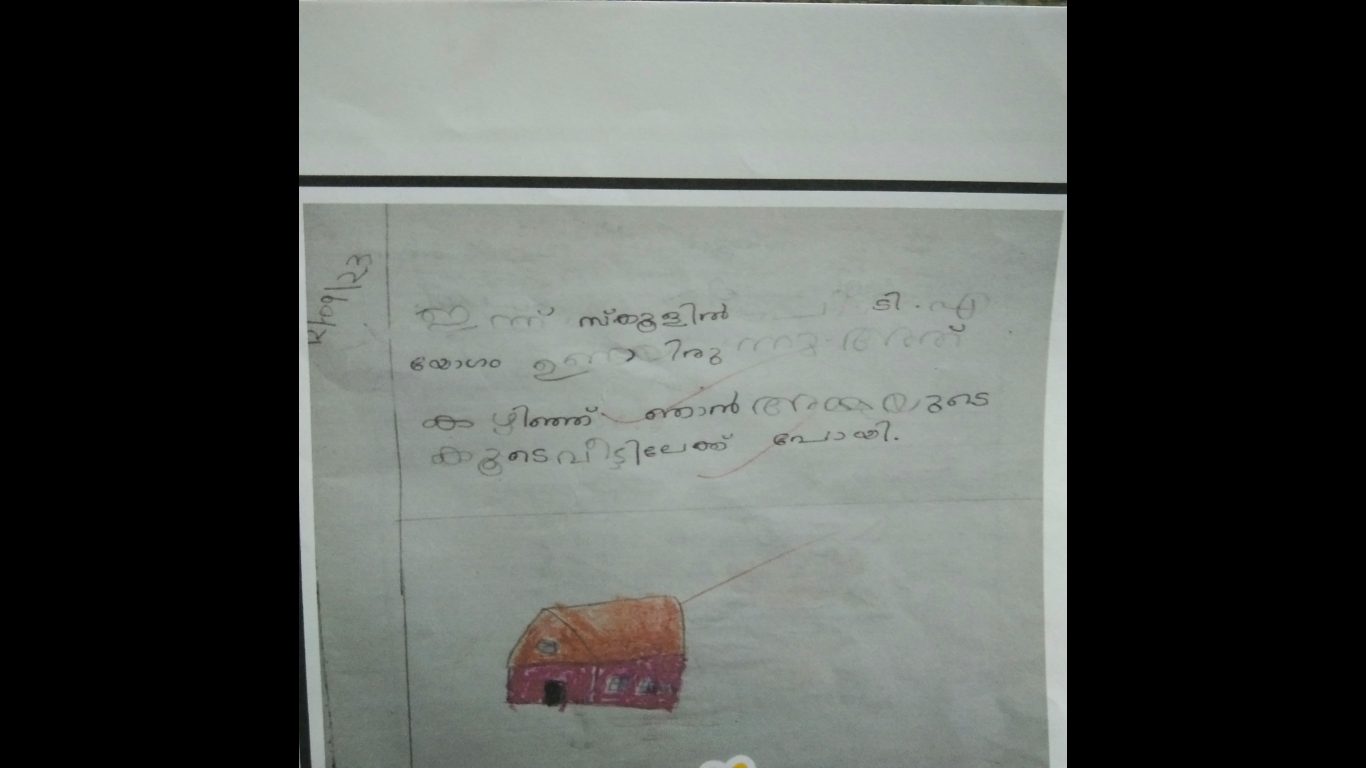 12/09/23
ഇന്ന് സ്കൂളിൽ പി. ടി. എ
യോഗം ഉണ്ടായിരുന്നു. അത്
കഴിഞ്ഞ് ഞാൻ അമ്മയുടെ
കൂടെ വീട്ടിലേക്ക് പോയി.